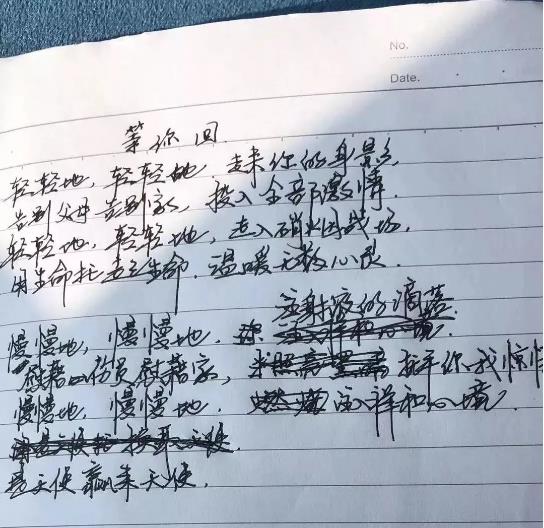 No.
Date.
等你回
轻轻地，轻轻地，走来你的身影，
告别父母告别家，投入全部激情.
轻轻地，轻轻地，走入硝烟战场，
用生命托起生命，温暖无数心灵
注射液的滴落
慢慢地，慢慢地，你
慰藉伤员慰藉家，抚平你我惊
慢慢地，慢慢地，祥和心境
是天使赢来天使.